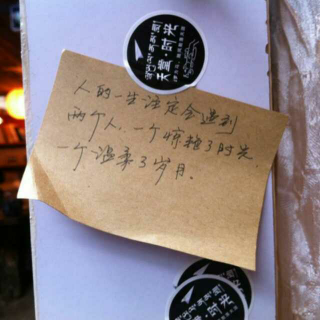 人的一生注定会遇到
两个人.一个惊艳了时光.
一个温柔了岁月.
天真·时光